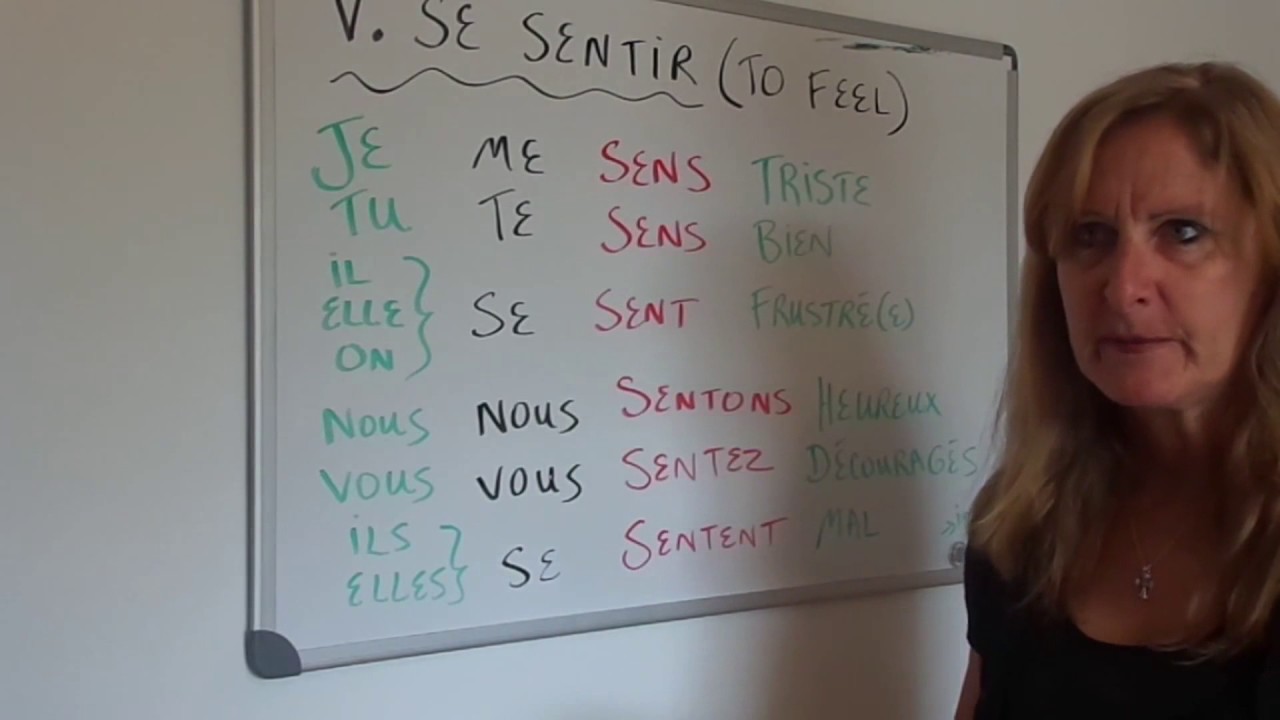 V. SE SENTIR (TO FEEL)
JE ME SENS TRISTE
TU TE SENS BIEN
IL
ELLE SE SENT FRUSTRÉ(E)
ON
NOUS NOUS SENTONS HEUREUX
VOUS VOUS SENTEZ DÉCOURAGÉS
ILS
ELLES SE SENTENT MAL